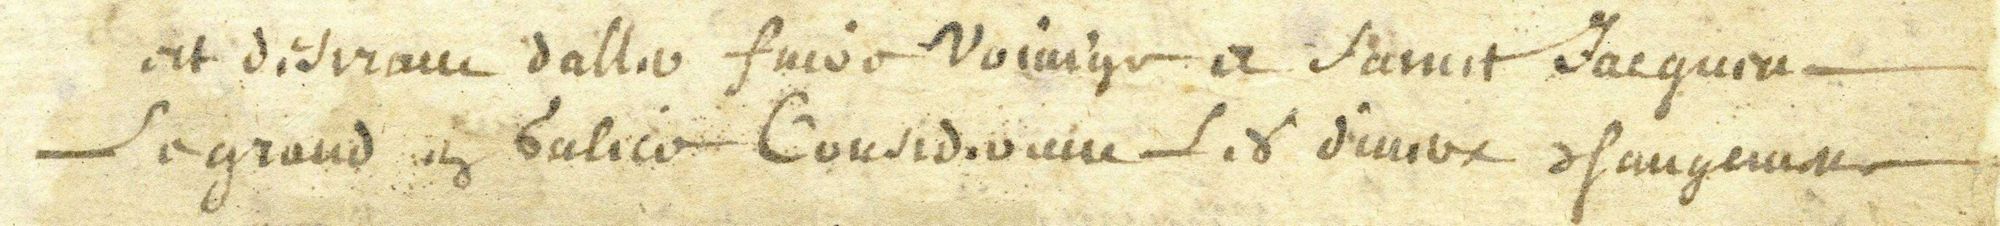 et desirant daller faire voiaige a sainct Jacques
Le grand en galice Considerant Les diuers changemens